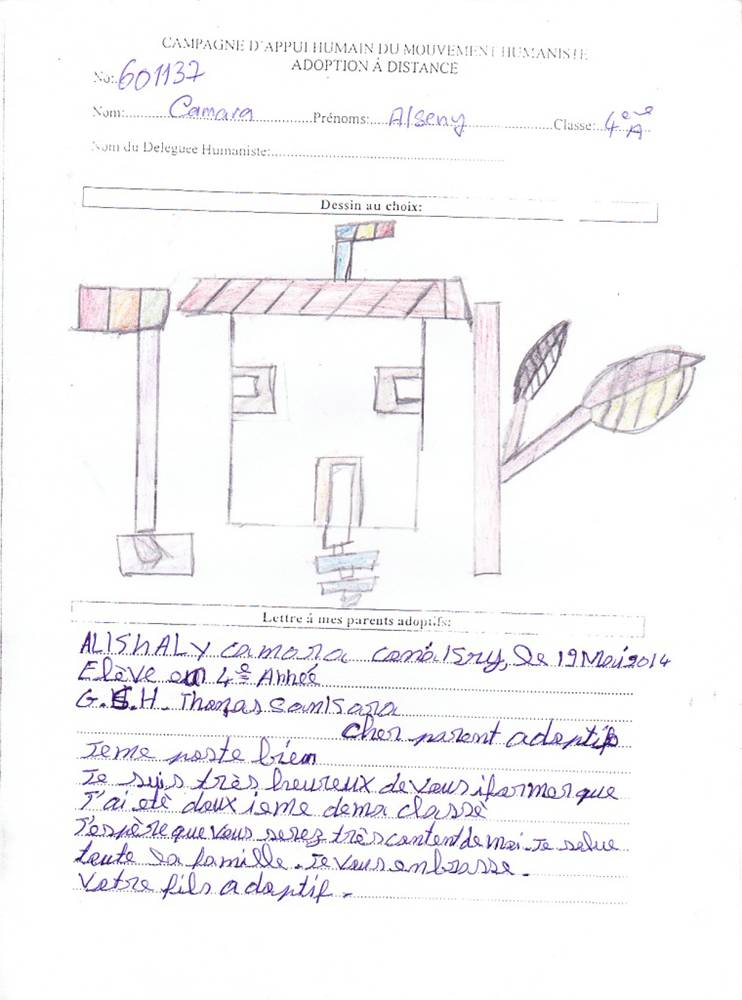 CAMPAGNE D'APPUI HUMAIN DU MOUVEMENT HUMANISTE
ADOPTION À DISTANCE
No: 601137
Nom: Camara Prénoms: Alseny Classe: 4eme A
Nom du Deleguee Humaniste:
Dessin au choix:
Lettre à mes parents adoptifs:
ALISHALY camara conakry, Le 19 Mai 2014
Elève en 4e Année
G.S.H. Thomas sankara
Cher parent adoptif
Jeme porte bien
Je suis très heureux de vous iformer que
J'ai été deux ieme dema classe
J'espère que vous serez très content de moi. Je salue
toute la famille. Je vous embrasse.
Votre fils adoptif.